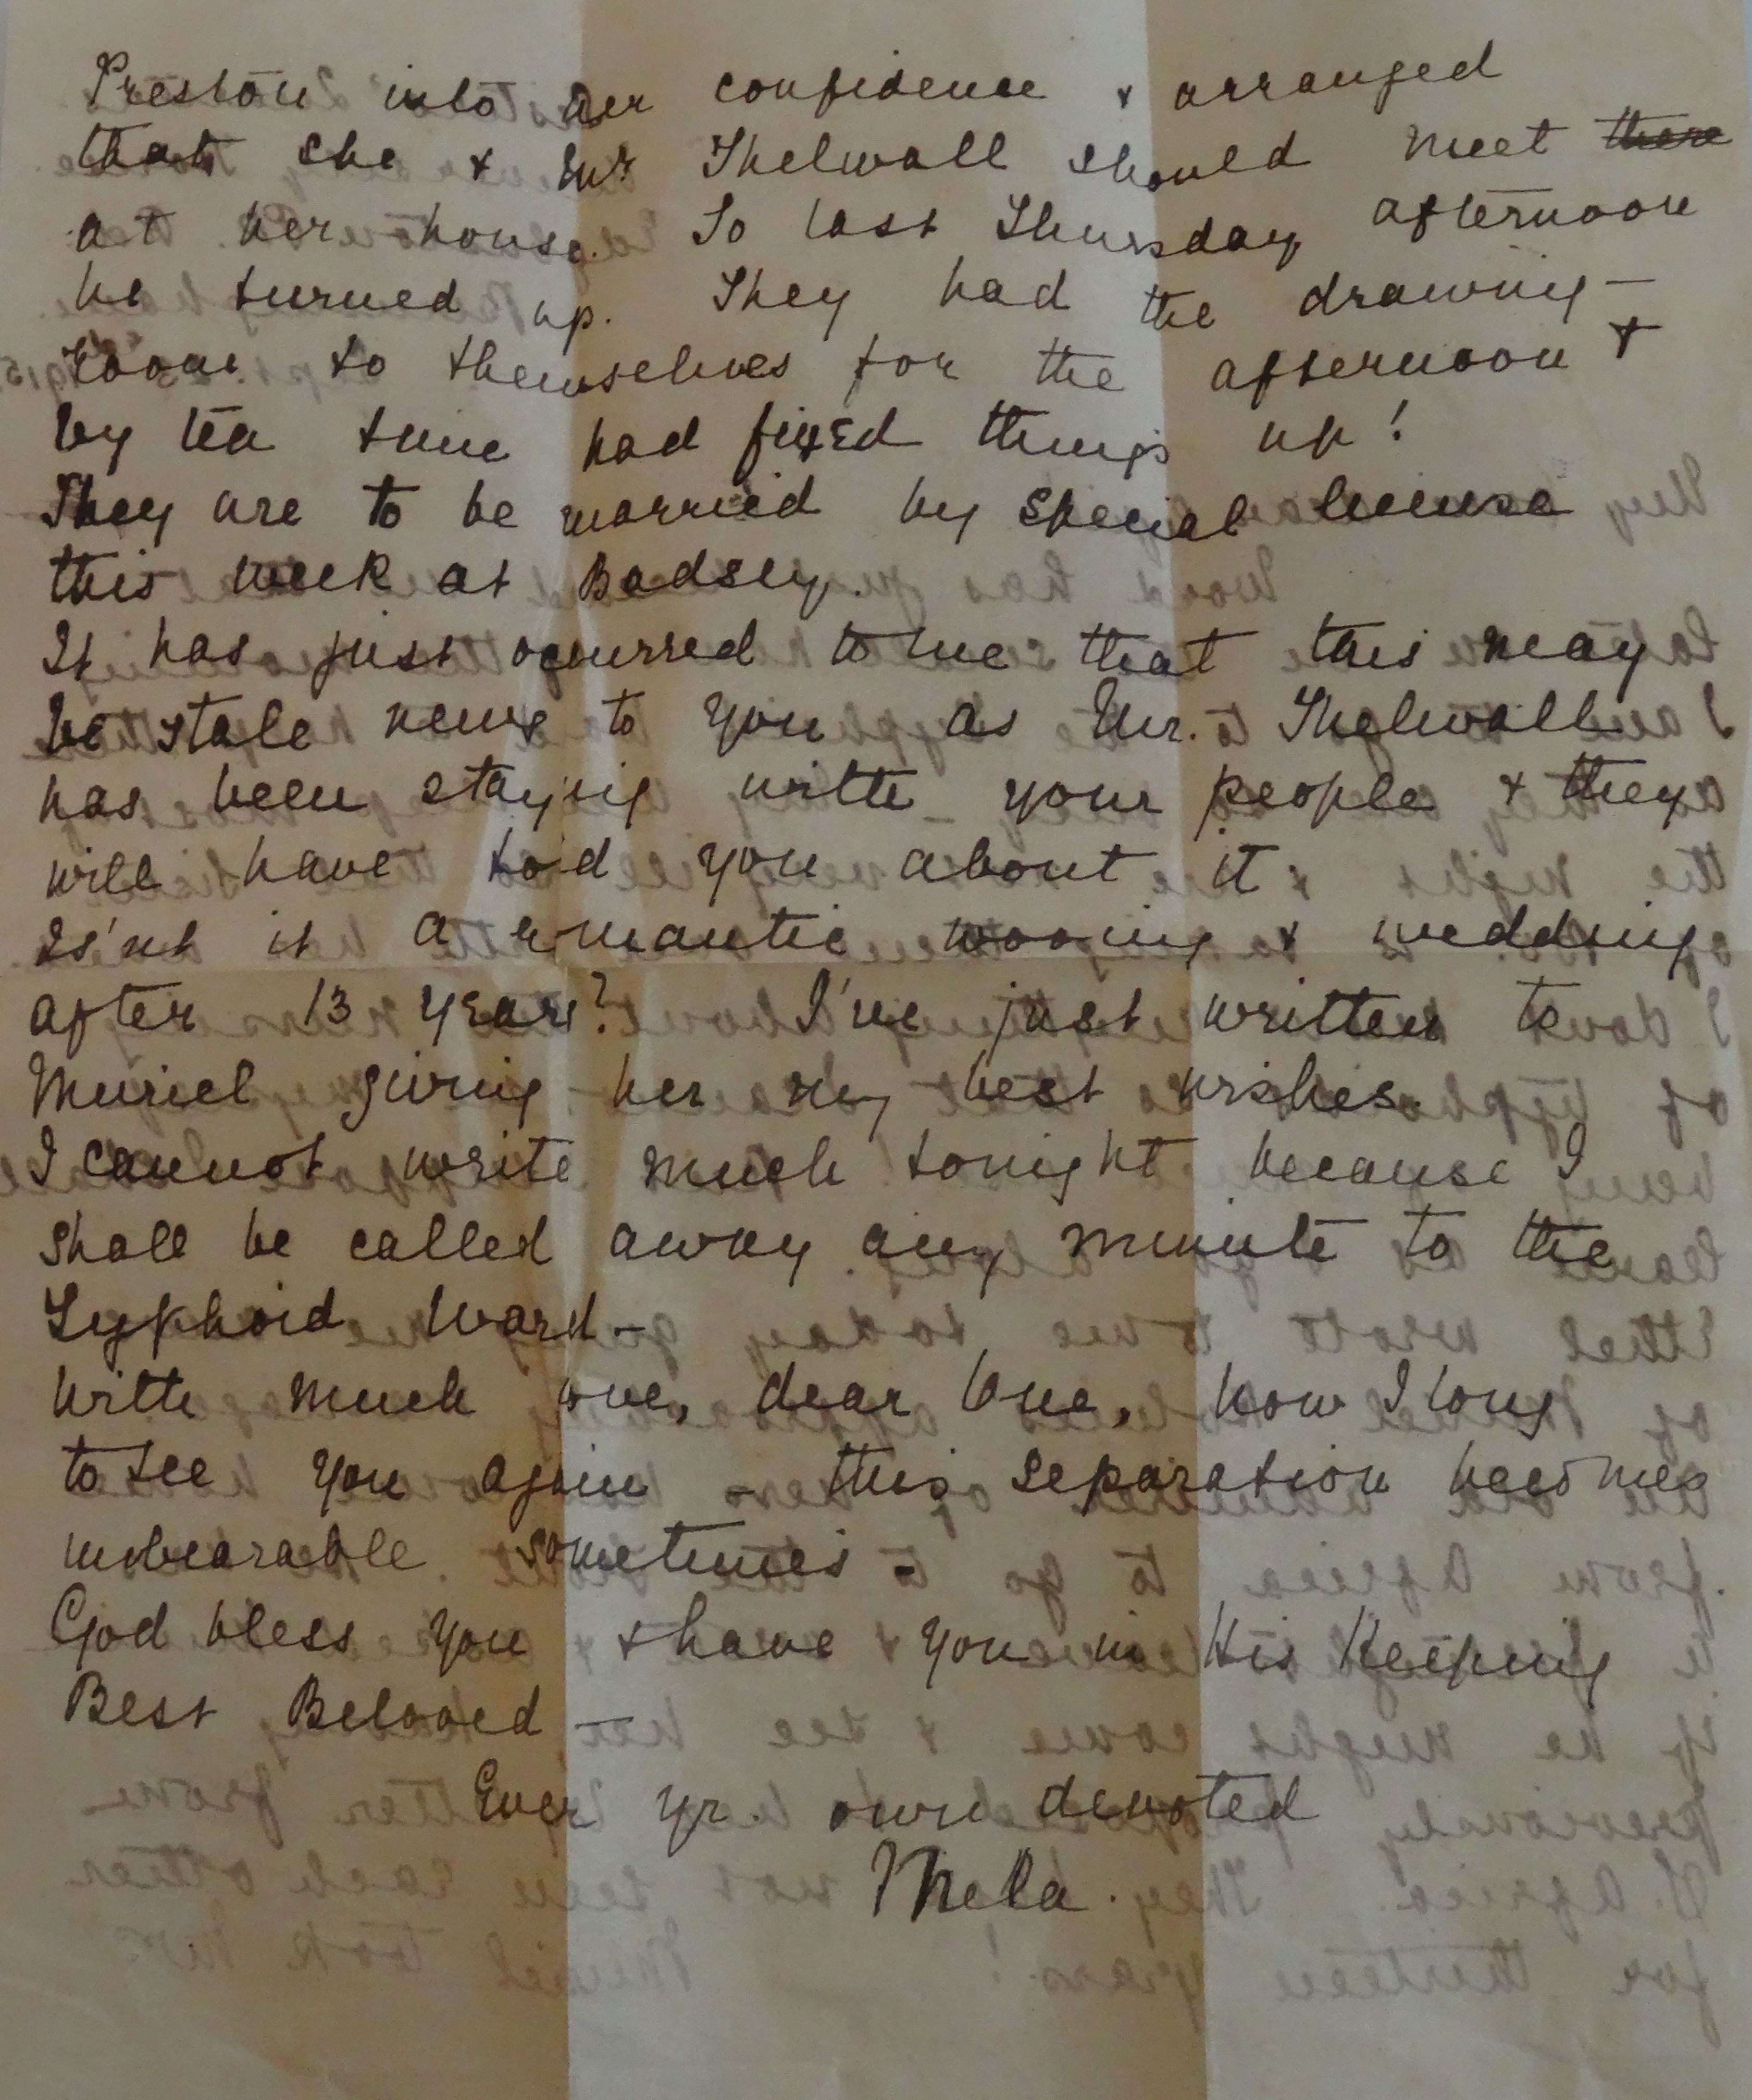 Preston into her confidence & arranged
that she & Mr. Thelwall should meet there
at her house. So last Thursday afternoon
he turned up. They had the drawing-
room to themselves for the afternoon &
by tea time had fixed things up!
They are to be married by special license
this week at Badsey.
It has just occurred to me that this may
be stale news to you as Mr. Thelwall
has been staying with your people & they
will have told you about it.
Is'nt it a romantic wooing & wedding
after 13 years? I've just written to
Muriel giving her my best wishes.
I cannot write much tonight because I
shall be called away any minute to the
Typhoid Ward –
With much love, dear One, how I long
to see you again – this separation becomes
unbearable sometimes –
God bless you & have you in His Keeping
Best Beloved –
Ever yr. own devoted
Mela.